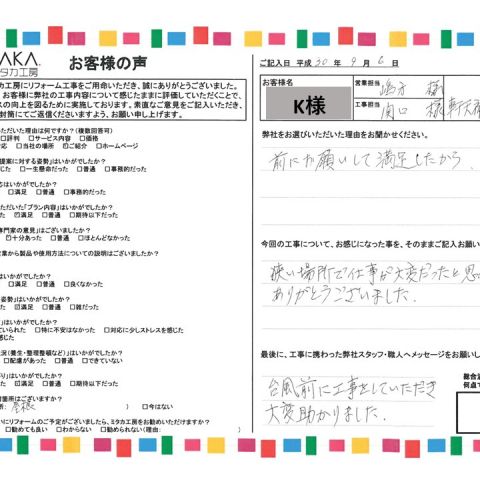 AKA.
ミタカ工房
お客様の声
タカ工房にリフォーム工事をご用命いただき、誠にありがとうございました。
お客様に弊社の工事内容について感じたままに評価していただくことで、
スの向上を図るために実施しております。素直なご意見をご記入いただき、
封筒にてご返信くださいますよう、お願い申し上げます。
ただいた理由は何ですか？（複数回答可）
□評判 □サービス内容 □価格
対応 □当社の場所 ☑ご紹介 □ホームページ
提案に対する姿勢」はいかがでしたか？
じた □一生懸命だった □普通 □事務的だった
応はいかがでしたか？
□満足 □普通 □事務的だった
ただいた「プラン内容」はいかがでしたか？
た ☑満足 □普通 □期待以下だった
専門家の意見」はございましたか？
☑十分あった □普通 □ほとんどなかった
営業から製品や使用方法についての説明はございましたか？
はいかがでしたか？
た □満足 □普通 □良くなかった
姿勢」はいかがでしたか？
た ☑満足 □普通 □雑だった
」はいかがでしたか？
ていられた □特に不安はなかった □対応に少しストレスを感じた
感じた
状況（養生・整理整頓など）」はいかがでしたか？
□配慮があった □普通 □できていない
がり」はいかがでしたか？
た ☑満足 □普通 □期待以下だった
討箇所はございますか？
所: 屋根 ） □今はない
いにリフォームのご予定がございましたら、ミタカ工房をお勧めいただけますか？
□勧めても良い □わからない □勧められない（理由: ）
ご記入日 平成 30 年 9 月 6 日
お客様名
K様
営業担当 様
工事担当 関口 様
弊社をお選びいただいた理由をお聞かせください。
前にお願いして満足したから、
今回の工事について、お感じになった事を、そのままご記入お願い
狭い場所で仕事が大変だったと思
ありがとうございました。
最後に、工事に携わった弊社スタッフ・職人へメッセージをお願いし
台風前に工事をしていただき
大変助かりました。
総合
何点で